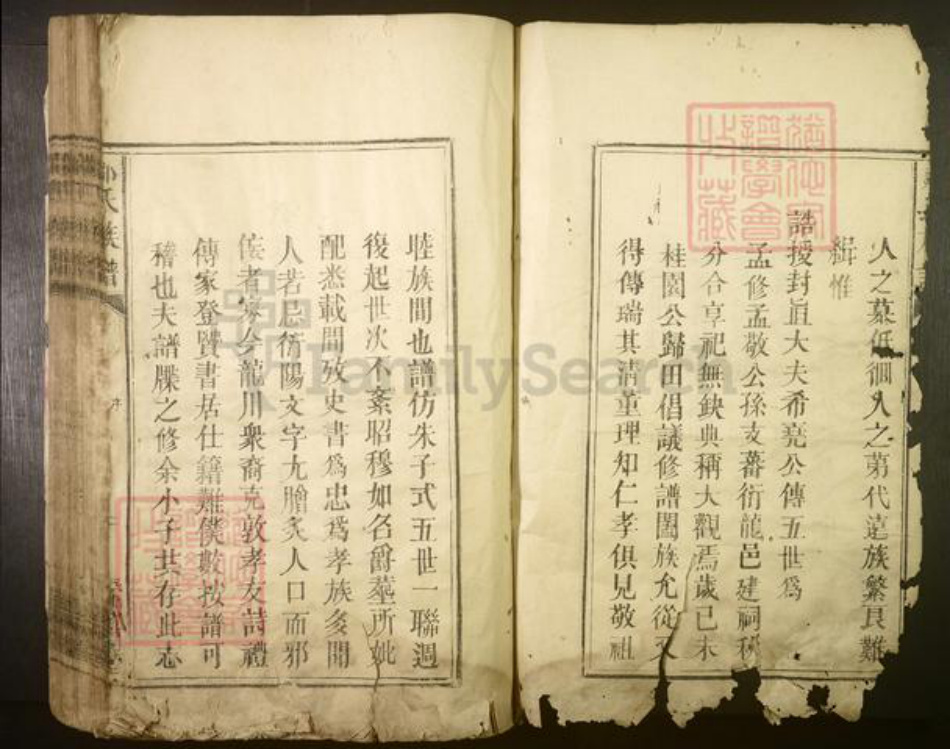 人之墓低徊久之第代遠族繁艮難
緝惟
誥授封直大夫希堯公傳五世爲
孟修孟敬公孫支蕃衍龍邑建祠
分合享祀無缺典稱大觀焉歲己未
桂園公歸田倡議修譜闔族允從又
得傳瑞其清董理知仁孝俱見敬祖
睦族間也譜仿朱子式五世一聯週
復起世次不紊昭穆如名爵塟所妣
配悉載間攷史書爲忠爲孝族多聞
人若忌衍陽文字尢膾炙人口而邪
侫者寥今龍川衆裔克敦孝友詩禮
傳家登賢書居仕籍難僕數按譜可
稽也夫譜牒之修余小子其存此志
氏族譜
FamilySearch
譜學會
收藏